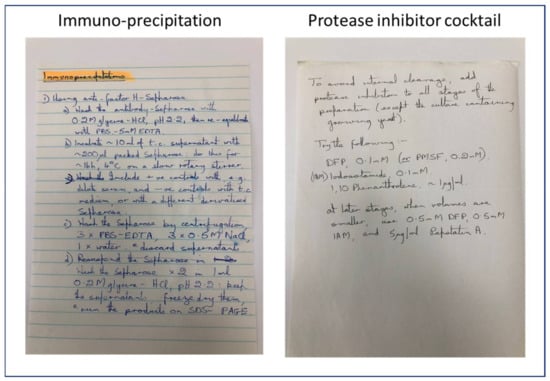 Immuno-precipitation
Protease inhibitor cocktail
Immunoprecipitations
1) Using anti-factor H-Sepharose
a) Wash the antibody-Sepharose with
0.2M glycine-HCl, pH 2.2, then re-equilibrate
with PBS-5mM EDTA
b) Incubate ~10ml of t.c. supernatant with
~200μl packed Sepharose. do this for
~16h, 4°C, on a slow rotary stirrer.
Include +ve controls with, e.g.
dilute serum, and -ve controls with t.c.
medium, or with a different derivatised
Sepharose
c) Wash the Sepharose by centrifugation
3 x PBS-EDTA, 3 x 0.5M NaCl,
1 x water "discard supernatant"
d) Resuspend the Sepharose in
Wash the Sepharose x 2 in 1ml
0.2M glycine-HCl, pH 2.2: keep
the supernatants freeze dry them,
run the products on SDS-PAGE
To avoid internal cleavage, add
protease inhibitors to all stages of the
preparation (except the culture containing
growing yeast).
Try the following :-
DFP, 0.1mM (or PMSF, 0.2mM).
(IAM) Iodoacetamide, 0.1mM
1,10 Phenanthroline, ~1μg/ml.
at later stages, when volumes are
smaller, use 0.5mM DFP, 0.5mM
IAM, and 5μg/ml Pepstatin A.